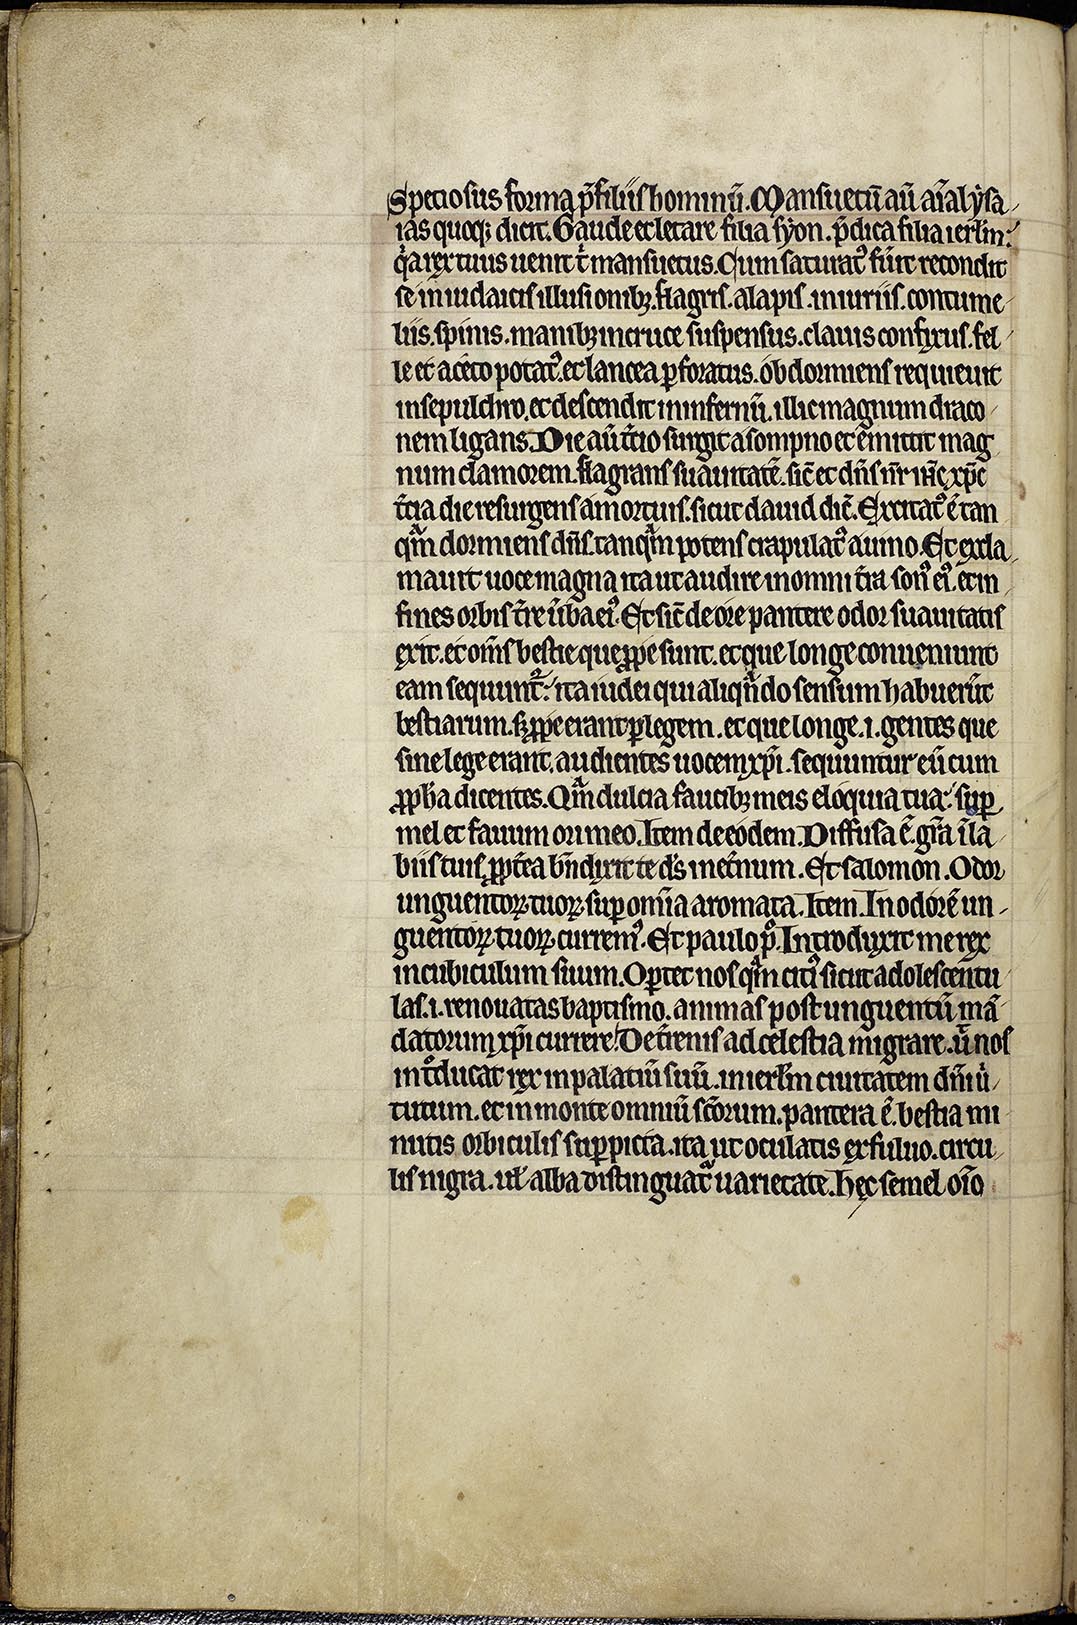 Speciosus forma p̄ filiis hominū. Mansuetū aū aīal ysa
ias quoq; dicit. Gaude et letare filia syon. p̄dica filia ierl̄m:
q̇a rex tuus uenit t̄ mansuetus. Cum saturatꝰ fūit recondit
se in iudaicis illusionibꝫ. flagris. alapis. iniuriis. contume
liis. spinis. manibꝫ in cruce suspensus. clauis confixus. fel
le et aceto potatꝰ. et lancea ꝑforatus. obdormiens requieuit
in sepulchro. et descendit in infernū. illic magnum draco
nem ligans. Die aū t̄cio surgit a sompno et emittit mag
num clamorem. flagrans suauitatē. sic̄ et dn̄s nr̄ ih̄c xp̄c
t̄cia die resurgens a mortuis. sicut dauid dic̄. Excitatꝰ ē tan
qͣm dormiens dn̄s. tanqͣm potens crapulatꝰ a uino. Et excla
mauit uoce magna ita ut audire in omni t̄ra sonꝰ eiꝰ. et in
fines orbis t̄re ūba eiꝰ. Et sic̄ de ore pantere odor suauitatis
exit. et om̄s bestie que ꝓpe sunt. et que longe conueniunt
eam sequunt̄: ita iudei qui aliqͣndo sensum habuer̄t
bestiarum. sꝫ ꝓpe erant ꝑ legem. et que longe .i. gentes que
sine lege erant. audientes uocem xp̄i. sequuntur eū cum
ꝓph̄a dicentes. Qͣm dulcia faucibꝫ meis eloquia tua: suꝑ
mel et fauum ori meo. Item de eodem. Diffusa ē. gr̄a ī la
biis tuis. ꝓpt̄ea bn̄dixit te ds̄ in et̄num. Et salomon. Odor
unguentoꝝ tuoꝝ. suꝑ omīa aromata. Item. In odorē un
guentoꝝ tuoꝝ. curremꝰ. Et paulo pꝰ. Introduxit me rex
in cubiculum suum. Oꝑtet nos qͣm citiꝰ sicut adolescentu
las .i. renouatas baptismo. animas post unguentū mā
datorum xp̄i currere. De t̄renis ad celestia migrare. ū nos
int̊ducat rex in palatiū suū. in ierl̄m ciuitatem dn̄i ū
tutum. et in monte omniū sc̄orum. pantera ē. bestia mi
nutis orbiculis suꝑpicta. ita ut oculatis ex fuluo. circu
lis nigra. ul̄ alba distinguat̄ uarietate. Hęc semel oīo